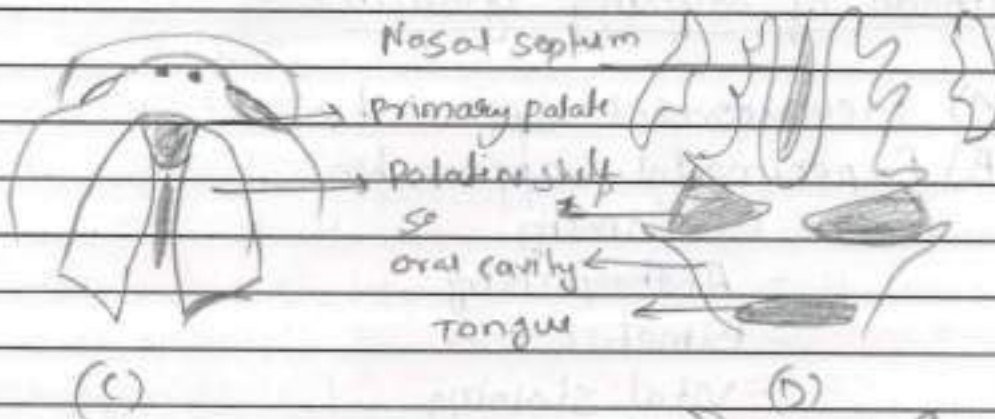 Nasal septum
primary palate
Palatine shelf
se
oral cavity
Tongue
(C) (D)